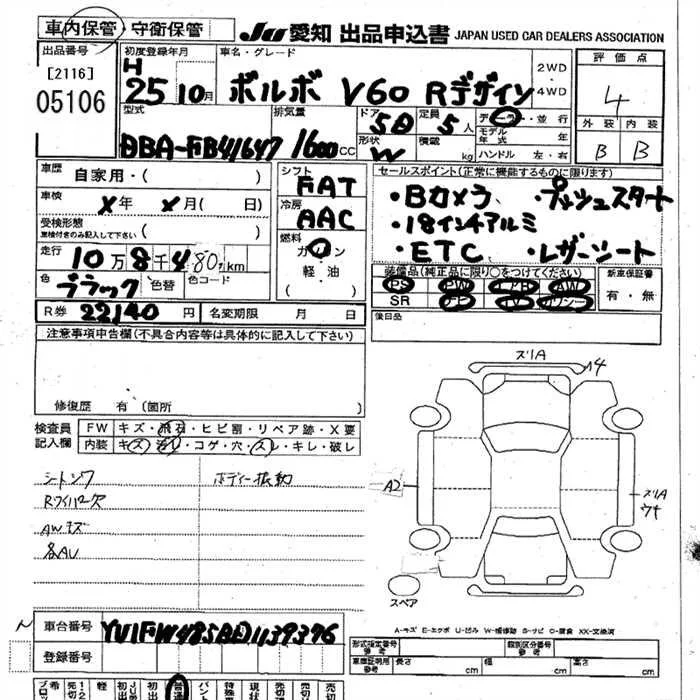 車内保管・守衛保管
JU 愛知 出品申込書 JAPAN USED CAR DEALERS ASSOCIATION
出品番号
[2116]
05106
初度登録年月
H
25 10月
車名・グレード
ボルボ V60 Rデザイン
2WD
・
4WD
評価点
4
外装 内装
B B
型式
DBA-FB4164T
排気量
1600cc
ドア
5D
定員
5人
形状
W
積載
kg
ディーラー・並行
モデル年式 年
ハンドル 左・右
車歴
自家用・( )
車検
X年 X月( 日)
受検形態
車検付きのみ記入して下さい ( )
走行
10万8千480km
色
ブラック
色替
色コード
R券 22140円
名変期限 月 日
シフト
FAT
冷房
AAC
燃料
ガソリン
・
軽・油
( )
セールスポイント(正常に機能するものに限ります)
・Bカメラ ・プッシュスタート
・18インチアルミ
・ETC ・レザーシート
装備品(純正品に限り○をつけてください)
PS PW エアB AW
SR ナビ TV カワシート
新車保証書
有・無
後日品
注意事項申告欄(不具合内容等は具体的に記入して下さい)
修復歴 有(箇所 )
検査員記入欄
FW キズ・飛石・ヒビ割・リペア跡・X要
内装 キズ・汚レ・コゲ・穴・スレ・キレ・破レ
シートシワ
ボディー振動
Rワイパー欠
AWキズ
各AU
スリA
A2
スリA
ウキ
スペア
A-キズ E-エクボ U-凹み W-補修跡 S-サビ C-腐食 XX-交換済
車台番号
YV1FW485BD1139376
登録番号
形式指定番号
参考
類別区分番号
参考
車庫証明用
参考
長さ cm
幅 cm
高さ cm